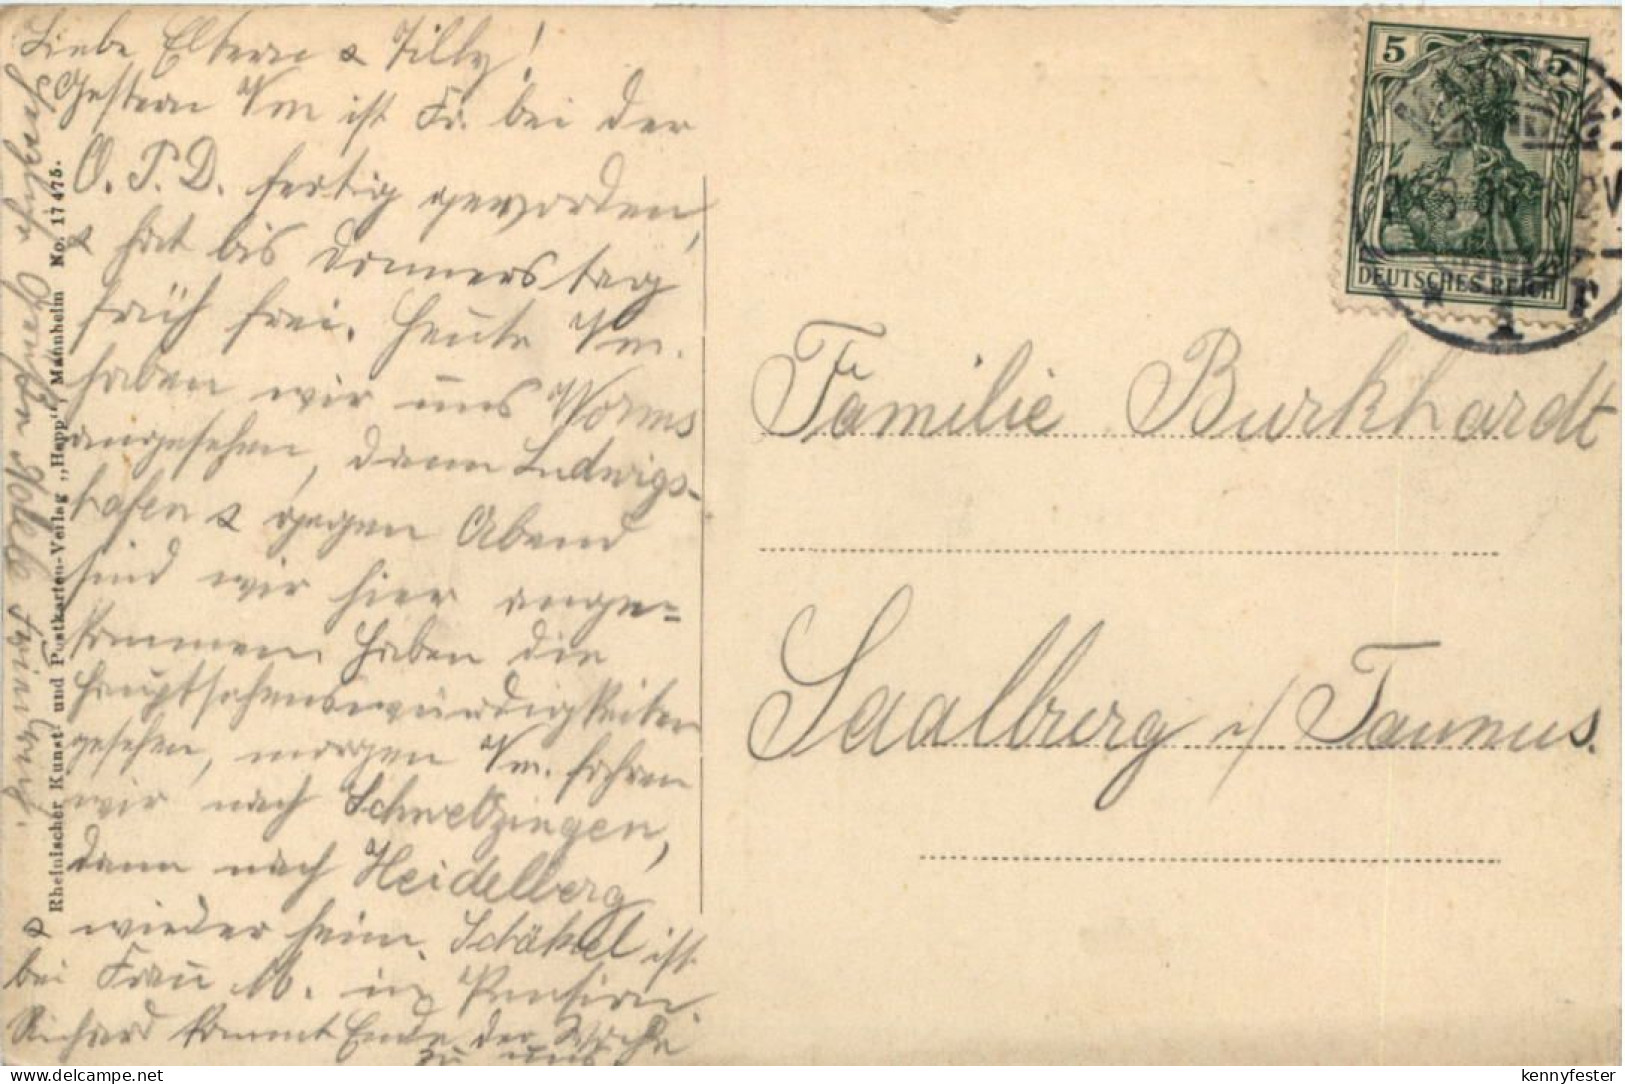 Liebe Eltern & Tilly!
Gestern Vm ist Fr. bei der
O. P. D. fertig geworden,
& hat bis Donnerstag
früh frei. Heute Vm.
haben wir uns Worms
angesehen, dann Ludwigs-
hafen & gegen Abend
sind wir hier ange=
kommen. Haben die
Hauptsehenswürdigkeiten
gesehen, morgen Vm. fahren
wir nach Schwetzingen,
dann nach Heidelberg
& wieder heim. Schäkel ist
bei Frau M. in Pension.
Richard kommt Ende der Woche
zu uns
Herzliche Grüße
Rheinischer Kunst- und Postkarten-Verlag „Hepp“, Mannheim No. 17475.
5 5
DEUTSCHES REICH
Familie Burkhardt
Saalburg i/ Taunus.
delcampe.net
kennyfester